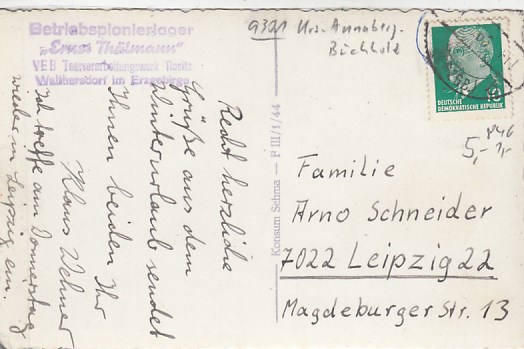 Betriebspionierlager
"Ernst Thälmann"
VEB Tauverarbeitungswerk
Walthersdorf im Erzgebirge
9321 Krs. Annaberg-
Buchholz
DEUTSCHE
DEMOKRATISCHE REPUBLIK
10
5,-
Recht herzliche
Grüße aus dem
Winterurlaub sendet
Ihnen beiden Ihr
Klaus Wehner
Ich treffe am Donnerstag
wieder in Leipzig ein.
Konsum Sehma — P III/1/44
Familie
Arno Schneider
7022 Leipzig 22
Magdeburger Str. 13